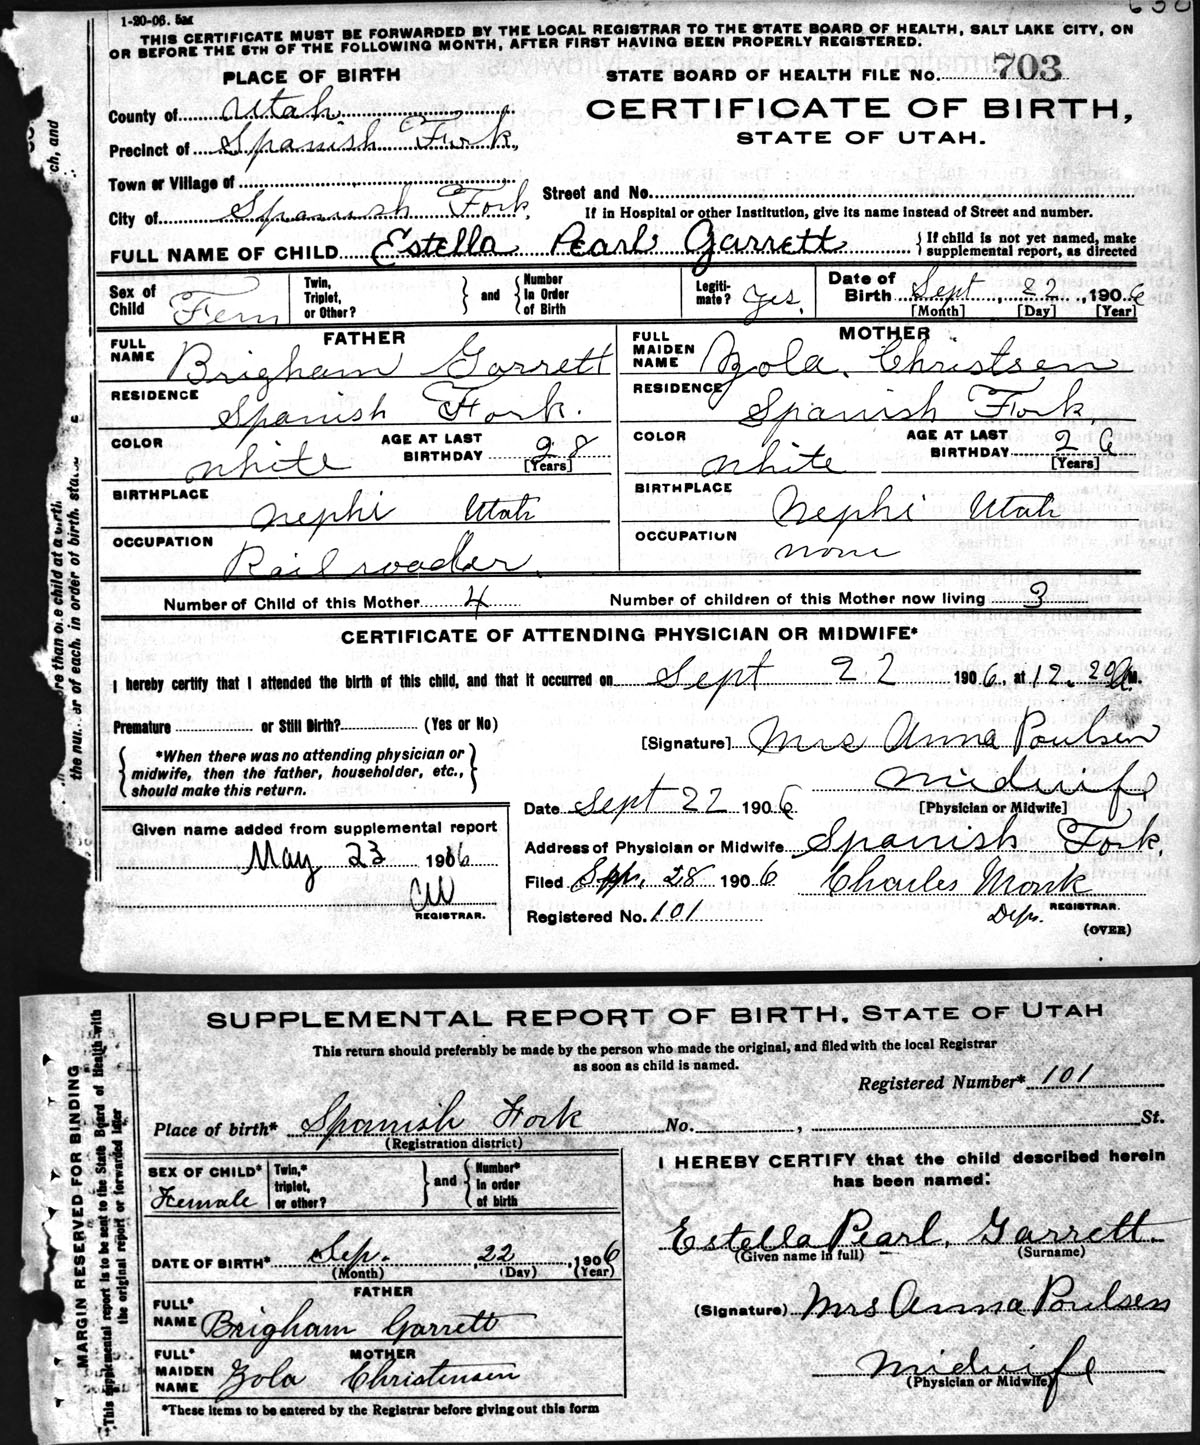 1-20-06. 5M
THIS CERTIFICATE MUST BE FORWARDED BY THE LOCAL REGISTRAR TO THE STATE BOARD OF HEALTH, SALT LAKE CITY, ON
OR BEFORE THE 5TH OF THE FOLLOWING MONTH, AFTER FIRST HAVING BEEN PROPERLY REGISTERED.
PLACE OF BIRTH
STATE BOARD OF HEALTH FILE No. 703
County of Utah
CERTIFICATE OF BIRTH,
Precinct of Spanish Fork,
STATE OF UTAH.
Town or Village of
Street and No.
City of Spanish Fork,
If in Hospital or other Institution, give its name instead of Street and number.
FULL NAME OF CHILD Estella Pearl Garrett { If child is not yet named, make supplemental report, as directed
Sex of Child Fem Twin, Triplet, or Other? } and { Number In Order of Birth Legiti-mate? Yes. Date of Birth Sept, 22, 1906
[Month] [Day] [Year]
FATHER MOTHER
FULL NAME Brigham Garrett FULL MAIDEN NAME Zola. Christsen
RESIDENCE Spanish Fork. RESIDENCE Spanish Fork,
COLOR white AGE AT LAST BIRTHDAY 28 [Years] COLOR white AGE AT LAST BIRTHDAY 26 [Years]
BIRTHPLACE Nephi Utah BIRTHPLACE Nephi Utah
OCCUPATION Railroader. OCCUPATION none
Number of Child of this Mother 4 Number of children of this Mother now living 3
CERTIFICATE OF ATTENDING PHYSICIAN OR MIDWIFE*
I hereby certify that I attended the birth of this child, and that it occurred on Sept 22 1906, at 12.20 A.M.
Premature or Still Birth? (Yes or No)
[Signature] Mrs Anna Poulsen
{ *When there was no attending physician or
midwife, then the father, householder, etc.,
should make this return. }
midwife
Date Sept 22 1906 [Physician or Midwife]
Given name added from supplemental report
Address of Physician or Midwife Spanish Fork,
May 23 1916
Filed Sept. 28 1906 Charles Monk
CW
REGISTRAR.
Registered No. 101 Dep. REGISTRAR.
(OVER)
SUPPLEMENTAL REPORT OF BIRTH, STATE OF UTAH
This return should preferably be made by the person who made the original, and filed with the local Registrar
as soon as child is named.
Registered Number* 101
Place of birth* Spanish Fork No. , St.
(Registration district)
SEX OF CHILD* Female Twin,* triplet, or other? } and { Number* In order of birth
I HEREBY CERTIFY that the child described herein
has been named:
Estella Pearl, Garrett.
(Given name in full) (Surname)
DATE OF BIRTH* Sep. , 22 , 1906
(Month) (Day) (Year)
FATHER
FULL* NAME Brigham Garrett
(Signature) Mrs Anna Poulsen
MOTHER
FULL* MAIDEN NAME Zola Christensen
midwife
(Physician or Midwife)
*These items to be entered by the Registrar before giving out this form
MARGIN RESERVED FOR BINDING
*This supplemental report is to be sent to the State Board of Health with
the original report or forwarded later